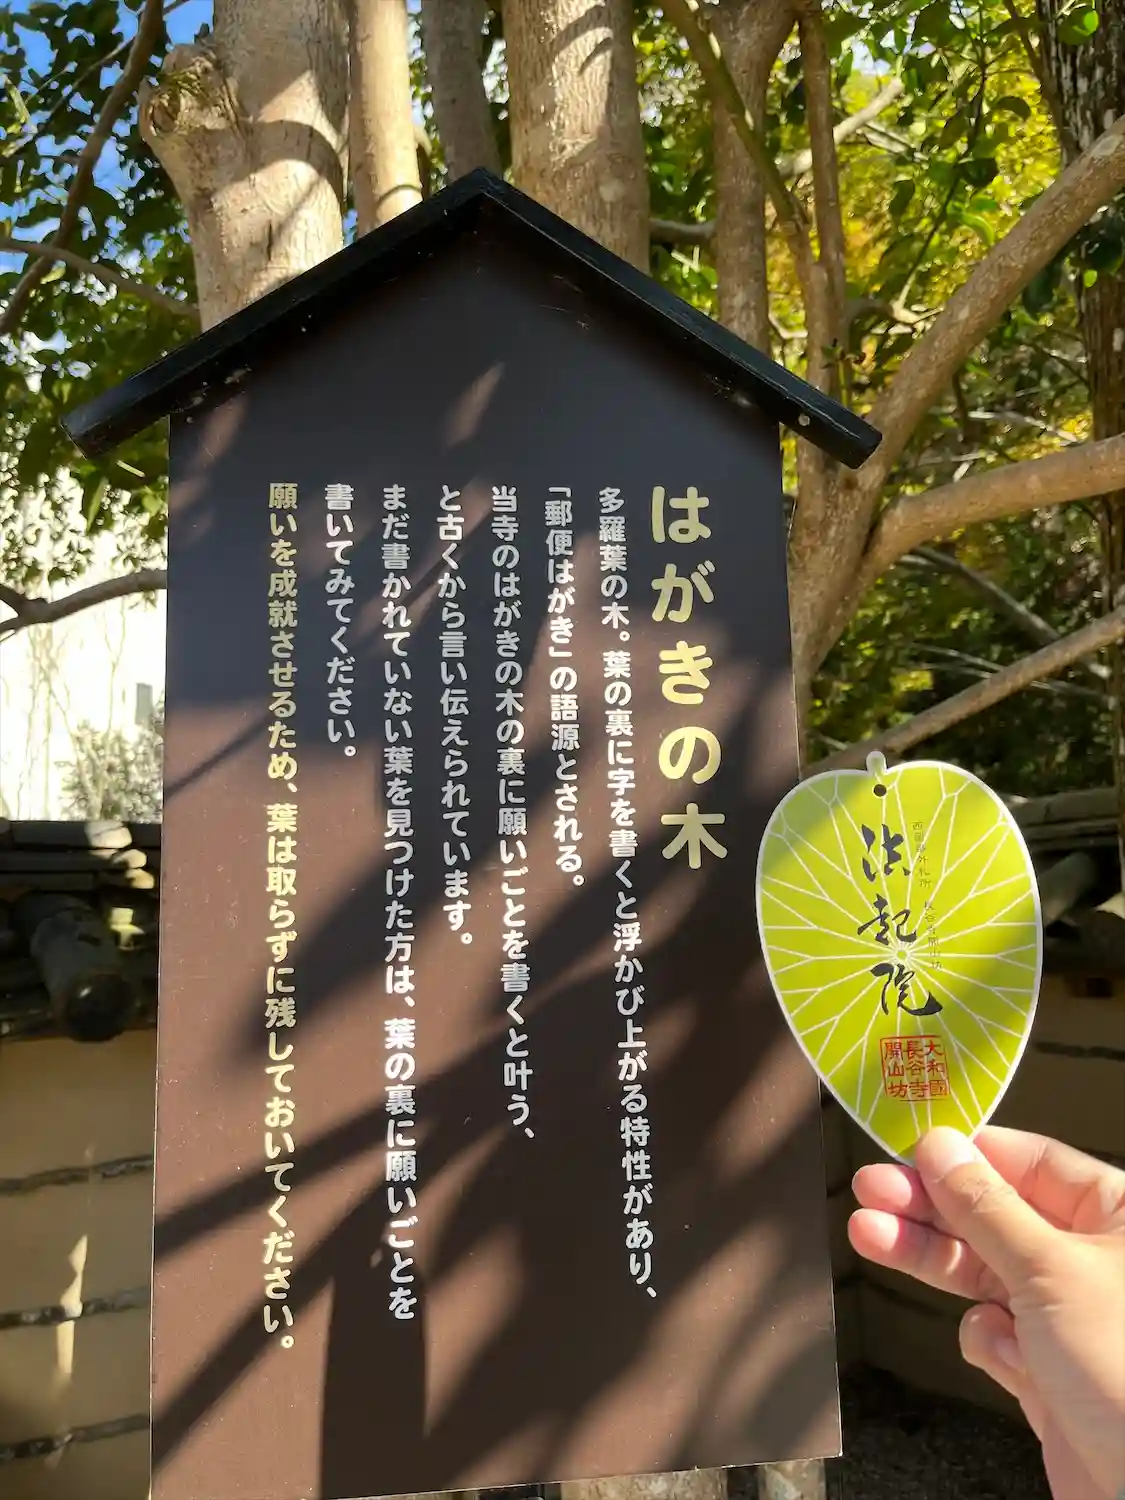 はがきの木
多羅葉の木。葉の裏に字を書くと浮かび上がる特性があり、
「郵便はがき」の語源とされる。
当寺のはがきの木の裏に願いごとを書くと叶う、
と古くから言い伝えられています。
まだ書かれていない葉を見つけた方は、葉の裏に願いごとを
書いてみてください。
願いを成就させるため、葉は取らずに残しておいてください。
法起院
大和國
長谷寺
開山坊